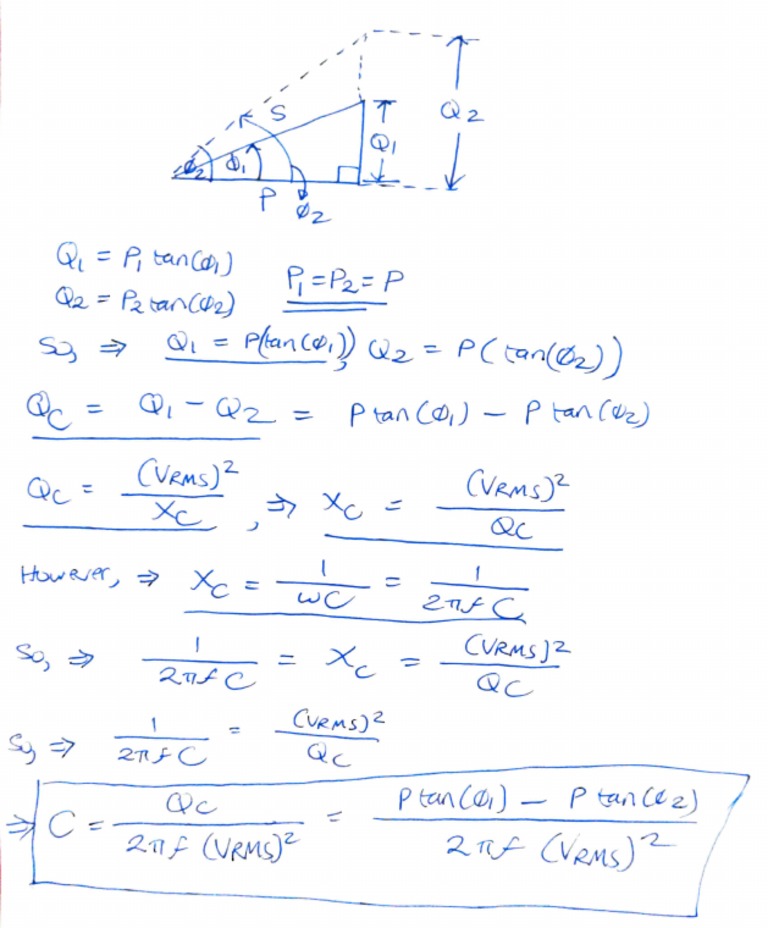 S
Q2
Q1
ϕ2 ϕ1
P
ϕ2
Q1 = P1 tan(ϕ1)
Q2 = P2 tan(ϕ2)
P1 = P2 = P
So, ⇒ Q1 = P(tan(ϕ1)), Q2 = P(tan(ϕ2))
QC = Q1 - Q2 = P tan(ϕ1) - P tan(ϕ2)
QC = (VRMS)² / XC , ⇒ XC = (VRMS)² / QC
However, ⇒ XC = 1 / ωC = 1 / 2πfC
So, ⇒ 1 / 2πfC = XC = (VRMS)² / QC
So, ⇒ 1 / 2πfC = (VRMS)² / QC
⇒ C = QC / 2πf (VRMS)² = P tan(ϕ1) - P tan(ϕ2) / 2πf (VRMS)²